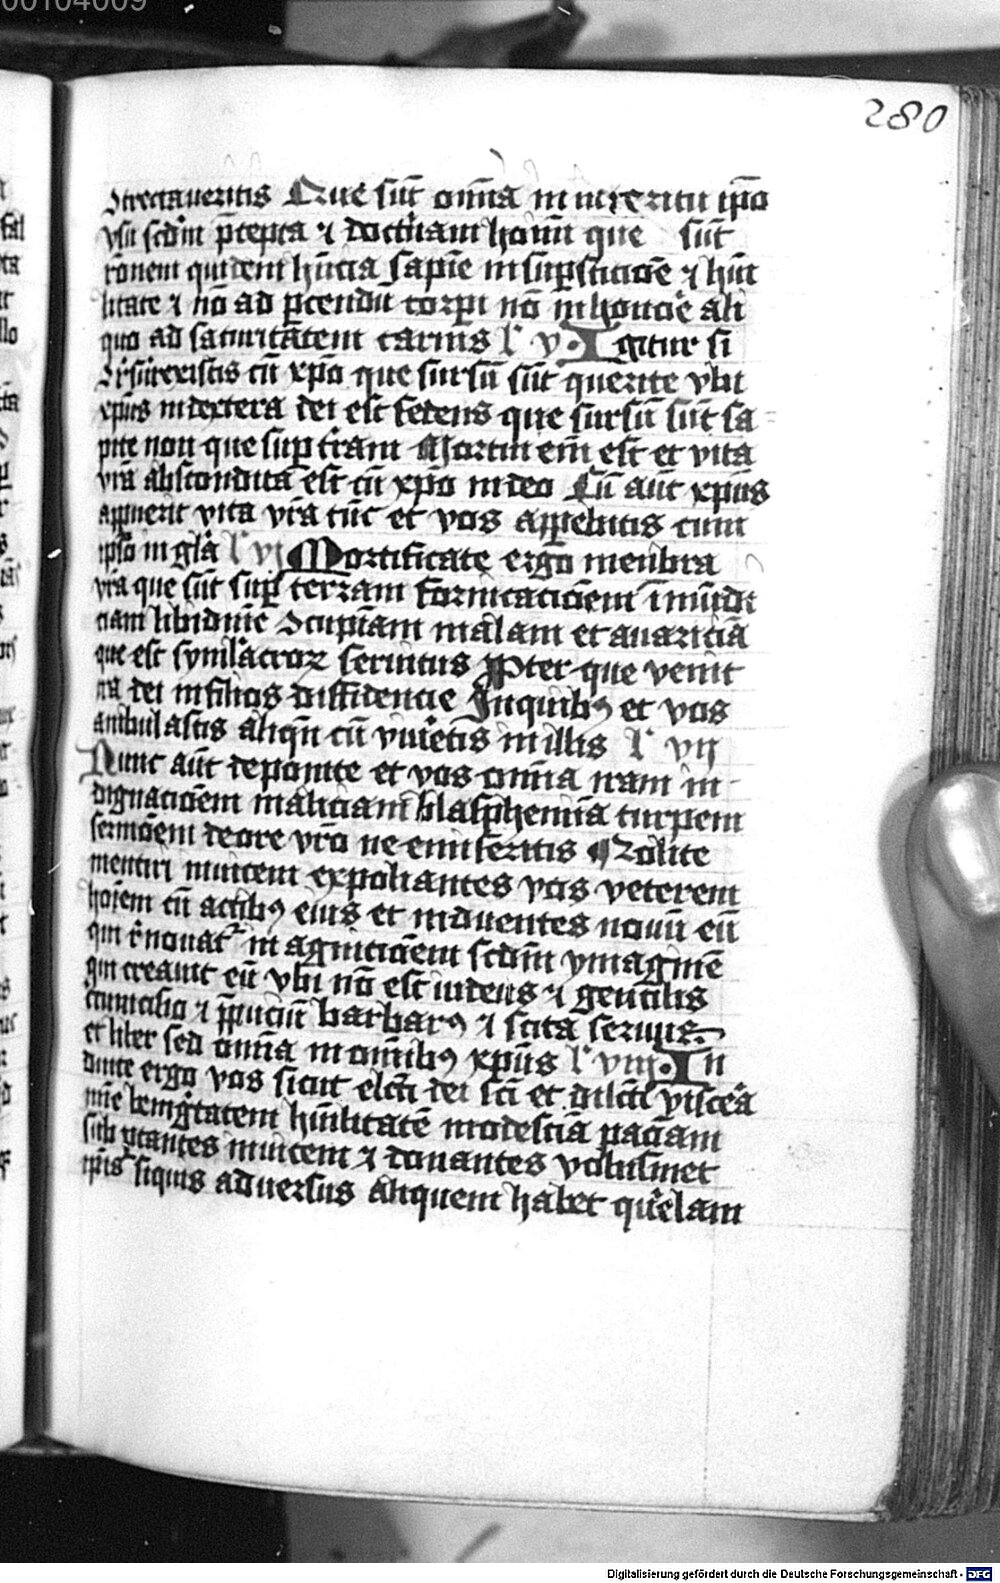 00104009
280
Strectaueritis Que sūt om̄ia in interitu ip̄o
vsu scd̄m p̄cepta ⁊ doctⁱnam hoīm que sūt
rōnem quidem hn̄cia sapīe in suꝑsticiōe ⁊ hūi
litate ⁊ nō ad ꝑcendū corpi nō in honoē ali
quo ad saturitātem carnis l' v Igitur si
ꝯsurrexistis cū xp̄o que sursū sūt querite vbi
xp̄us in dextera dei est sedens que sursū sūt sa
pite non que suꝑ t̄ram Mortui em̄ est et vita
vr̄a abscondita est cū xp̄o in deo Cū aūt xp̄us
apparuerit vita vr̄a tūc et vos apꝑebitis cum
ip̄so in gl̄a l' vj Mortificate ergo menbra
vr̄a que sūt suꝑ terram fornicaciōem īmūdi
ciam libidinē ꝯcupīam malam et auariciā
que est symulacroꝝ seruitus Propter que venit
ira dei in filios diffidencie In quibꝯ et vos
ambulastis aliqn̄ cū viuetis in illis l' vij
Nunc aūt deponite et vos om̄ia iram in
dignaciōem maliciam blasphemiā turpem
sermōem de ore vr̄o ne emiseritis Nolite
mentiri inuicem expoliantes vos veterem
hoīem cū actibꝯ eius et induentes nouū eū
qui renouat᷑ in agniciōem scd̄m ymaginē
qui creauit eū vbi nō est iudeus ⁊ gentilis
circumcisio ⁊ p̄puciū barbarꝯ ⁊ scita seruus
et liber sed om̄ia in om̄ibꝯ xp̄us l' viij In
duite ergo vos sicut elcti dei sc̄i et dilcti viscēa
mīe benigtatem hūilitatē modestiā paciam
subportantes inuicem ⁊ donantes vobismet
ip̄is siquis aduersus aliquem habet querelam
Digitalisierung gefördert durch die Deutsche Forschungsgemeinschaft - DFG